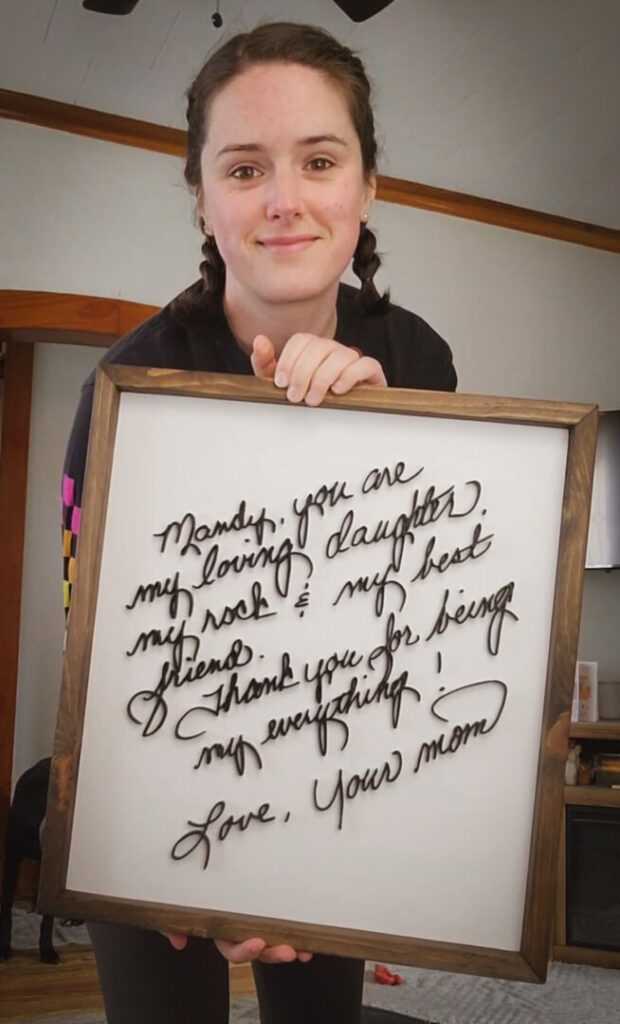 Mandy, you are
my loving daughter,
my rock & my best
friend.
Thank you for being
my everything!
Love, Your mom